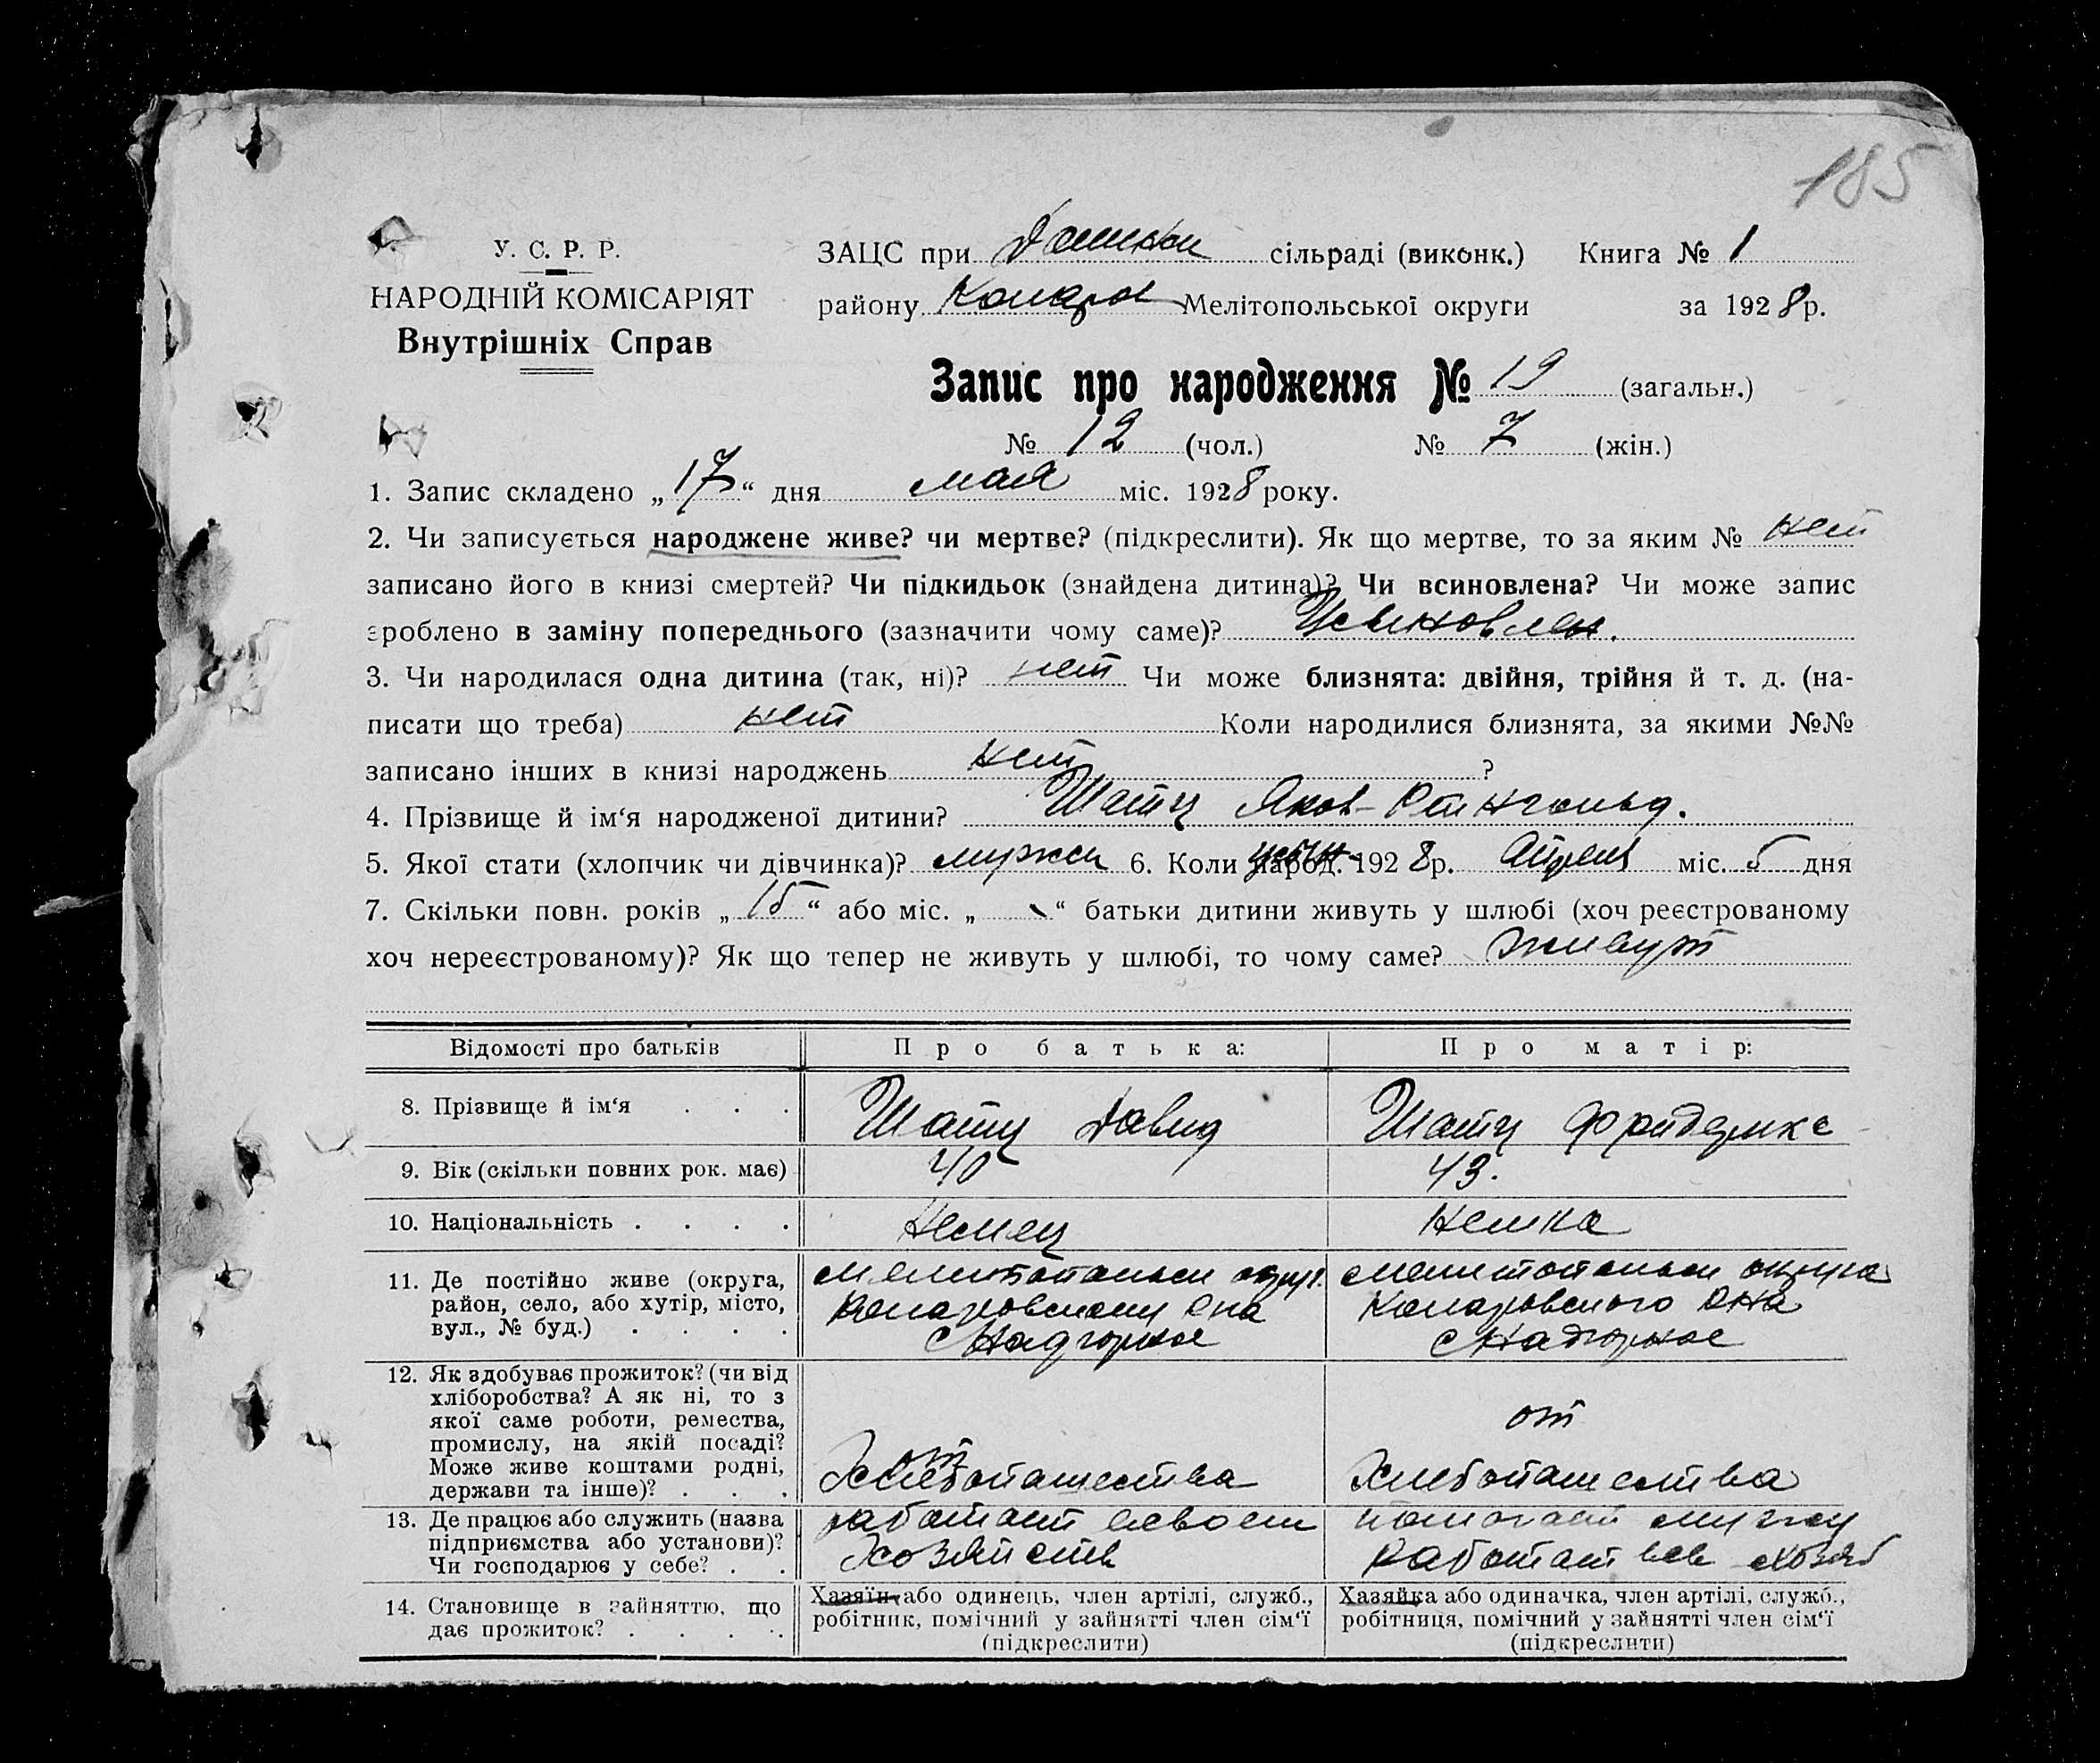 185
У. С. Р. Р.
НАРОДНІЙ КОМІСАРІЯТ
Внутрішніх Справ
ЗАЦС при сільраді (виконк.) Книга № 1
району Комаров Мелітопольської округи за 1928 р.
Запис про народження № 19 (загальн.)
№ 12 (чол.) № 7 (жін.)
1. Запис складено „17“ дня мая міс. 1928 року.
2. Чи записується народжене живе? чи мертве? (підкреслити). Як що мертве, то за яким № нет
записано його в книзі смертей? Чи підкидьок (знайдена дитина)? Чи всиновлена? Чи може запис
зроблено в заміну попереднього (зазначити чому саме)? Усыновлен.
3. Чи народилася одна дитина (так, ні)? нет Чи може близнята: двійня, трійня й т. д. (на-
писати що треба) нет Коли народилися близнята, за якими №№
записано інших в книзі народжень нет ?
4. Прізвище й ім‘я народженої дитини? Шатц Яков-Рейнгольд.
5. Якої стати (хлопчик чи дівчинка)? мужск 6. Коли усын народ. 1928 р. Апреля міс. 5 дня
7. Скільки повн. років „15“ або міс. „ “ батьки дитини живуть у шлюбі (хоч реєстрованому
хоч нереєстрованому)? Як що тепер не живуть у шлюбі, то чому саме? живут
Відомості про батьків Про батька: Про матір:
8. Прізвище й ім‘я . . . Шатц Давид Шатц Фридерика
9. Вік (скільки повних рок. має) 40 43.
10. Національність . . . . Немец Немка
11. Де постійно живе (округа,
район, село, або хутір, місто,
вул., № буд.) . . . .
Мелитопольск округ.
Комаровському Рна
с Надгорное
Мелитопольск округа
Комаровського Рна
с Надгорное
12. Як здобуває прожиток? (чи від
хліборобства? А як ні, то з
якої саме роботи, ремества,
промислу, на якій посаді?
Може живе коштами родні,
держави та інше)? . . .
от
Хлебопашества
от
Хлебопашества
13. Де працює або служить (назва
підприємства або установи)?
Чи господарює у себе? . .
работает всвоем
Хозяйств
помогает мужу
работает
14. Становище в зайняттю, що
дає прожиток? . . . .
Хазяїн або одинець, член артілі, служб.,
робітник, помічний у зайнятті член сім‘ї
(підкреслити)
Хазяйка або одиначка, член артілі, служб.,
робітниця, помічний у зайнятті член сім‘ї
(підкреслити)